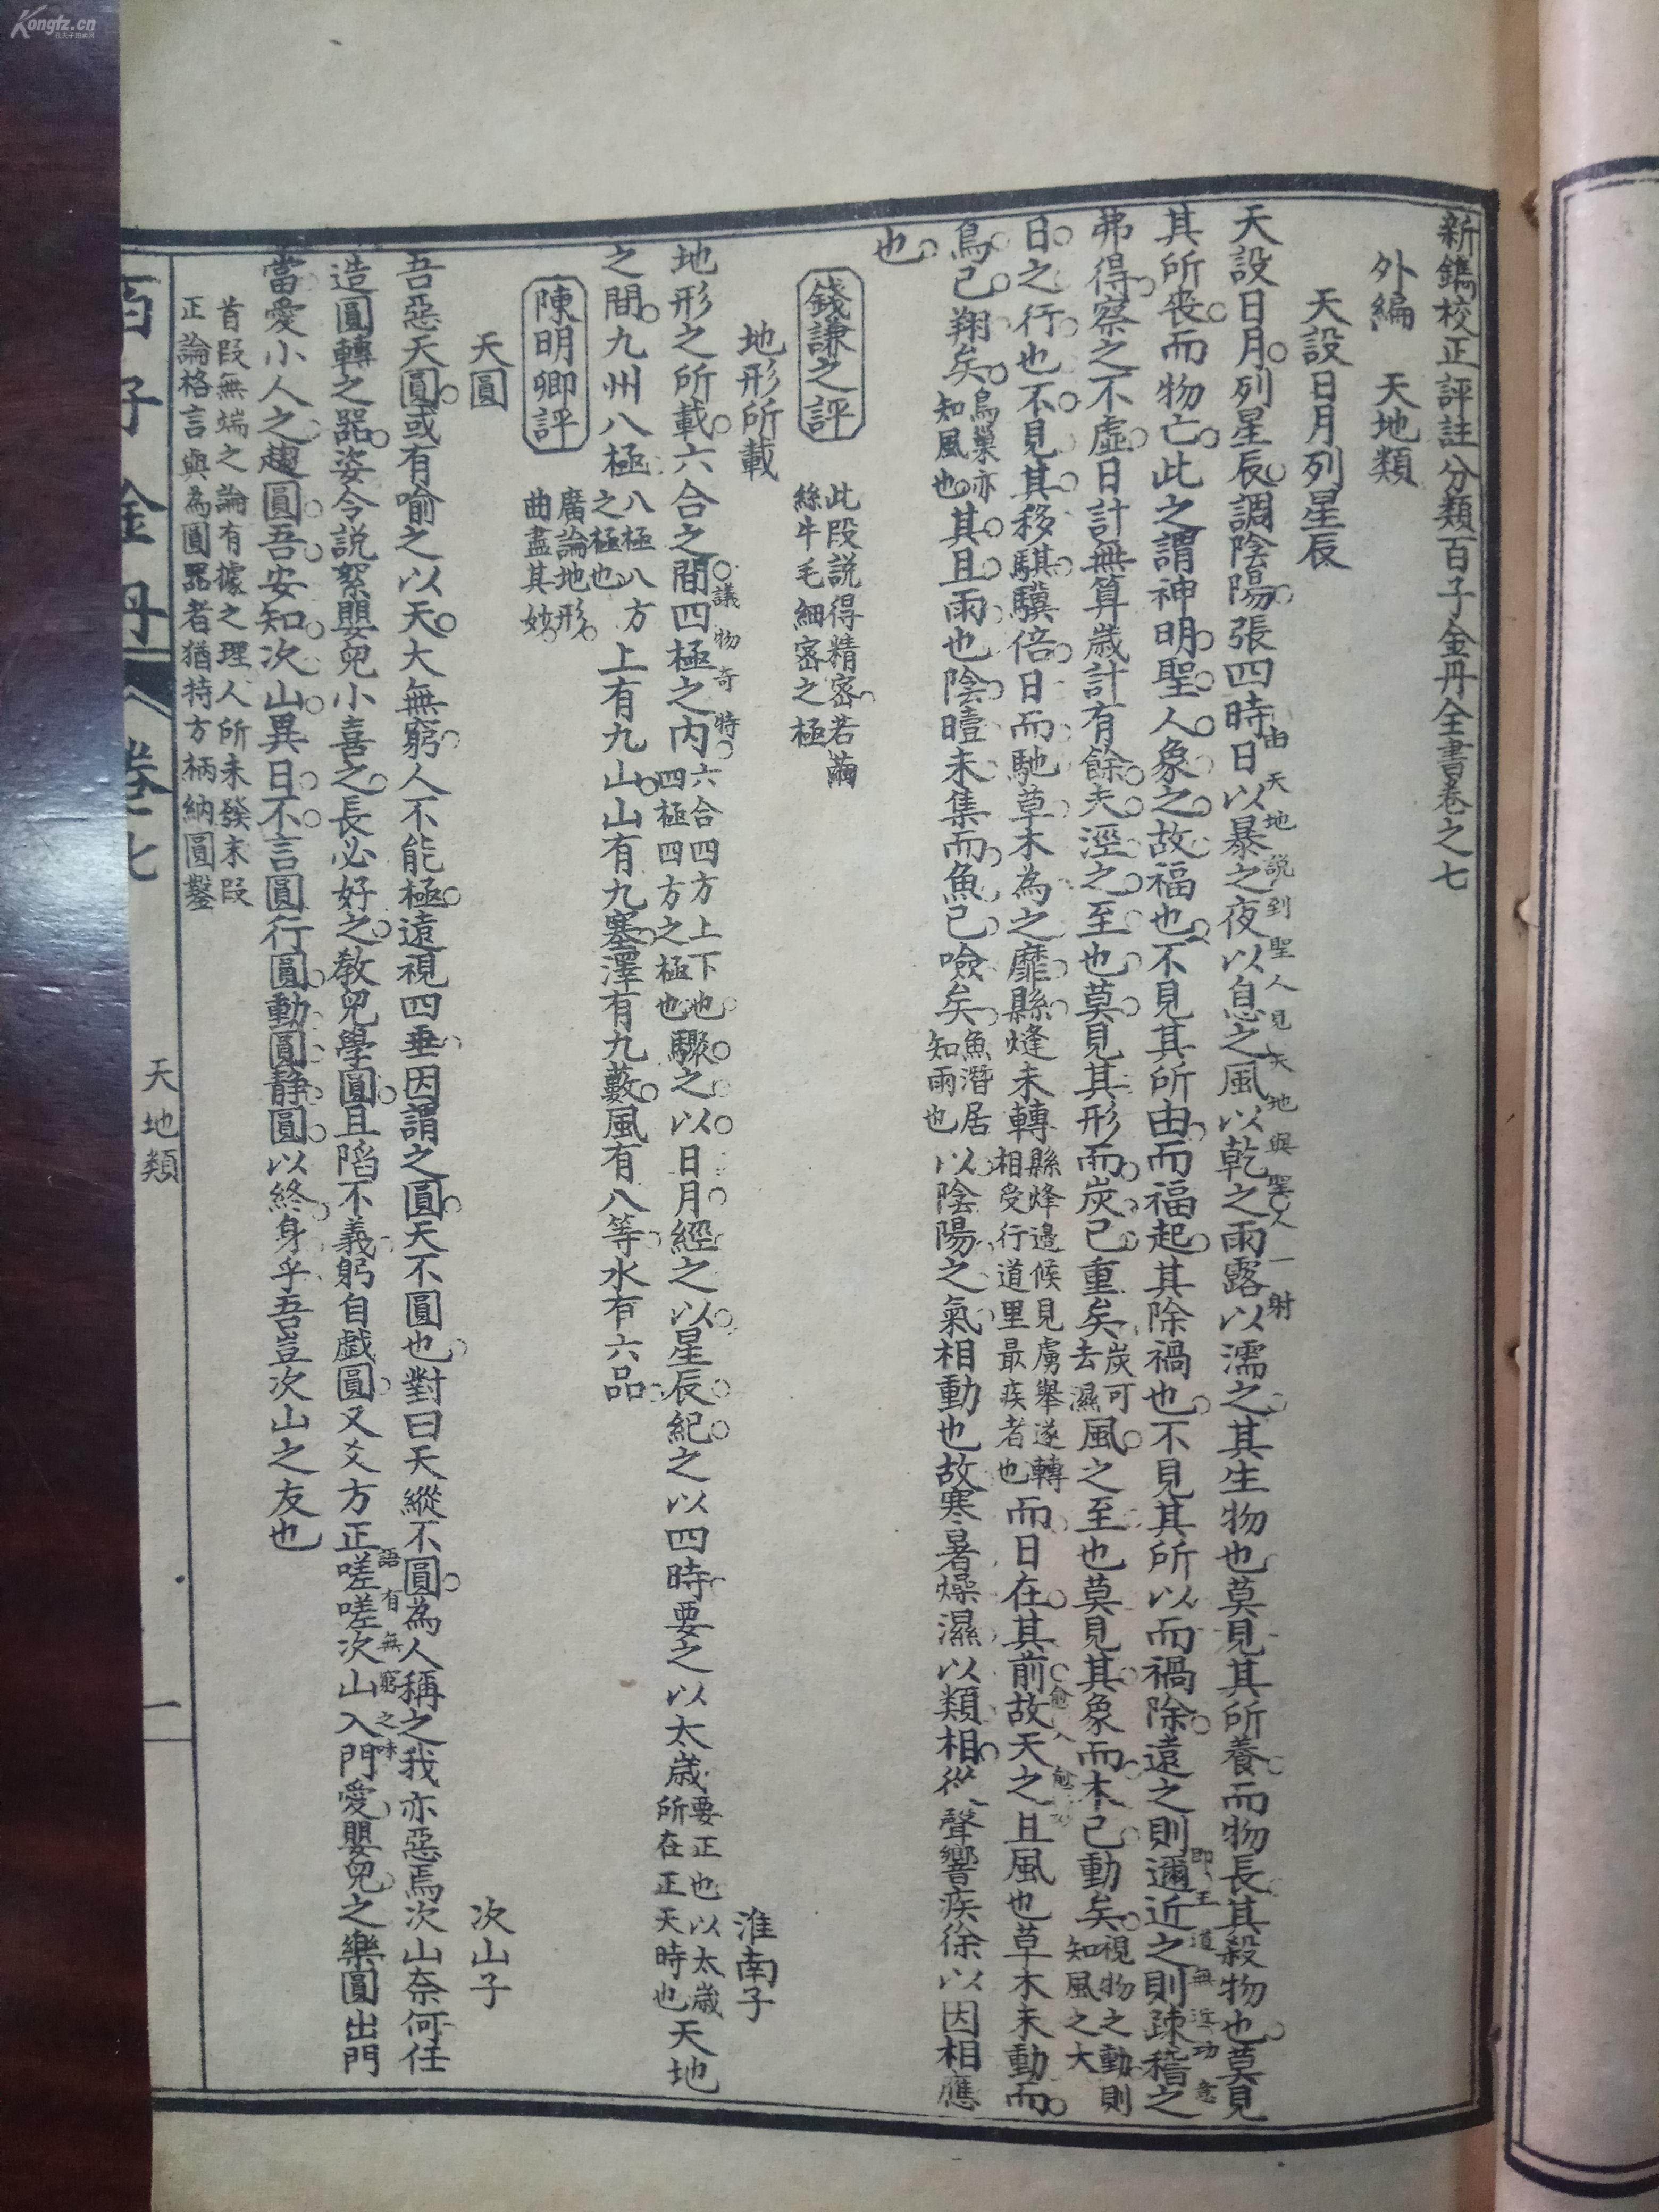 新鐫校正評註分類百子金丹全書卷之七
外編　天地類
天設日月列星辰
天設日月列星辰調陰陽張四時日以暴之夜以息之風以乾之雨露以濡之其生物也莫見其所養而物長其殺物也莫見
由天地説到聖人見天地與聖人一
其所喪而物亡此之謂神明聖人象之故福也不見其所由而福起其除禍也不見其所以而禍除遠之則邇近之則疎稽之
即王道無近功意
弗得察之不虛日計無算歲計有餘夫溼之至也莫見其形而炭已重矣炭可去濕風之至也莫見其象而木已動矣視物之動則知風之大
日之行也不見其移騏驥倍日而馳草木為之靡縣烽未轉縣烽邊候見虜舉遂轉相受行道里最疾者也而日在其前故天之且風也草木未動而
鳥已翔矣鳥巢亦知風也其且雨也陰曀未集而魚已噞矣魚潛居知雨也以陰陽之氣相動也故寒暑燥濕以類相從聲響疾徐以因相應
也
錢謙之評　此段説得精密若繭絲牛毛細密之極
地形所載　淮南子
地形之所載六合之間四極之內六合四方上下也四極四方之極也驟之以日月經之以星辰紀之以四時要之以太歲要正也以太歲所在正天時也天地
議物奇特
之間九州八極八極八方之極也上有九山山有九塞澤有九藪風有八等水有六品
陳明卿評　廣論地形曲盡其妙
天圓　次山子
吾惡天圓或有喻之以天大無窮人不能極遠視四垂因謂之圓天不圓也對曰天縱不圓為人稱之我亦惡焉次山奈何任
造圓轉之器姿令説絮嬰兒小喜之長必好之教兒學圓且陷不義躬自戲圓又爻方正嗟嗟次山入門愛嬰兒之樂圓出門
語有無窮之味
當愛小人之趨圓吾安知次山異日不言圓行圓動圓静圓以終身乎吾豈次山之友也
首段無端之論有據之理人所未發末段
正論格言與為圓器者猶持方柄納圓鑿
百子金丹　卷七　天地類　一